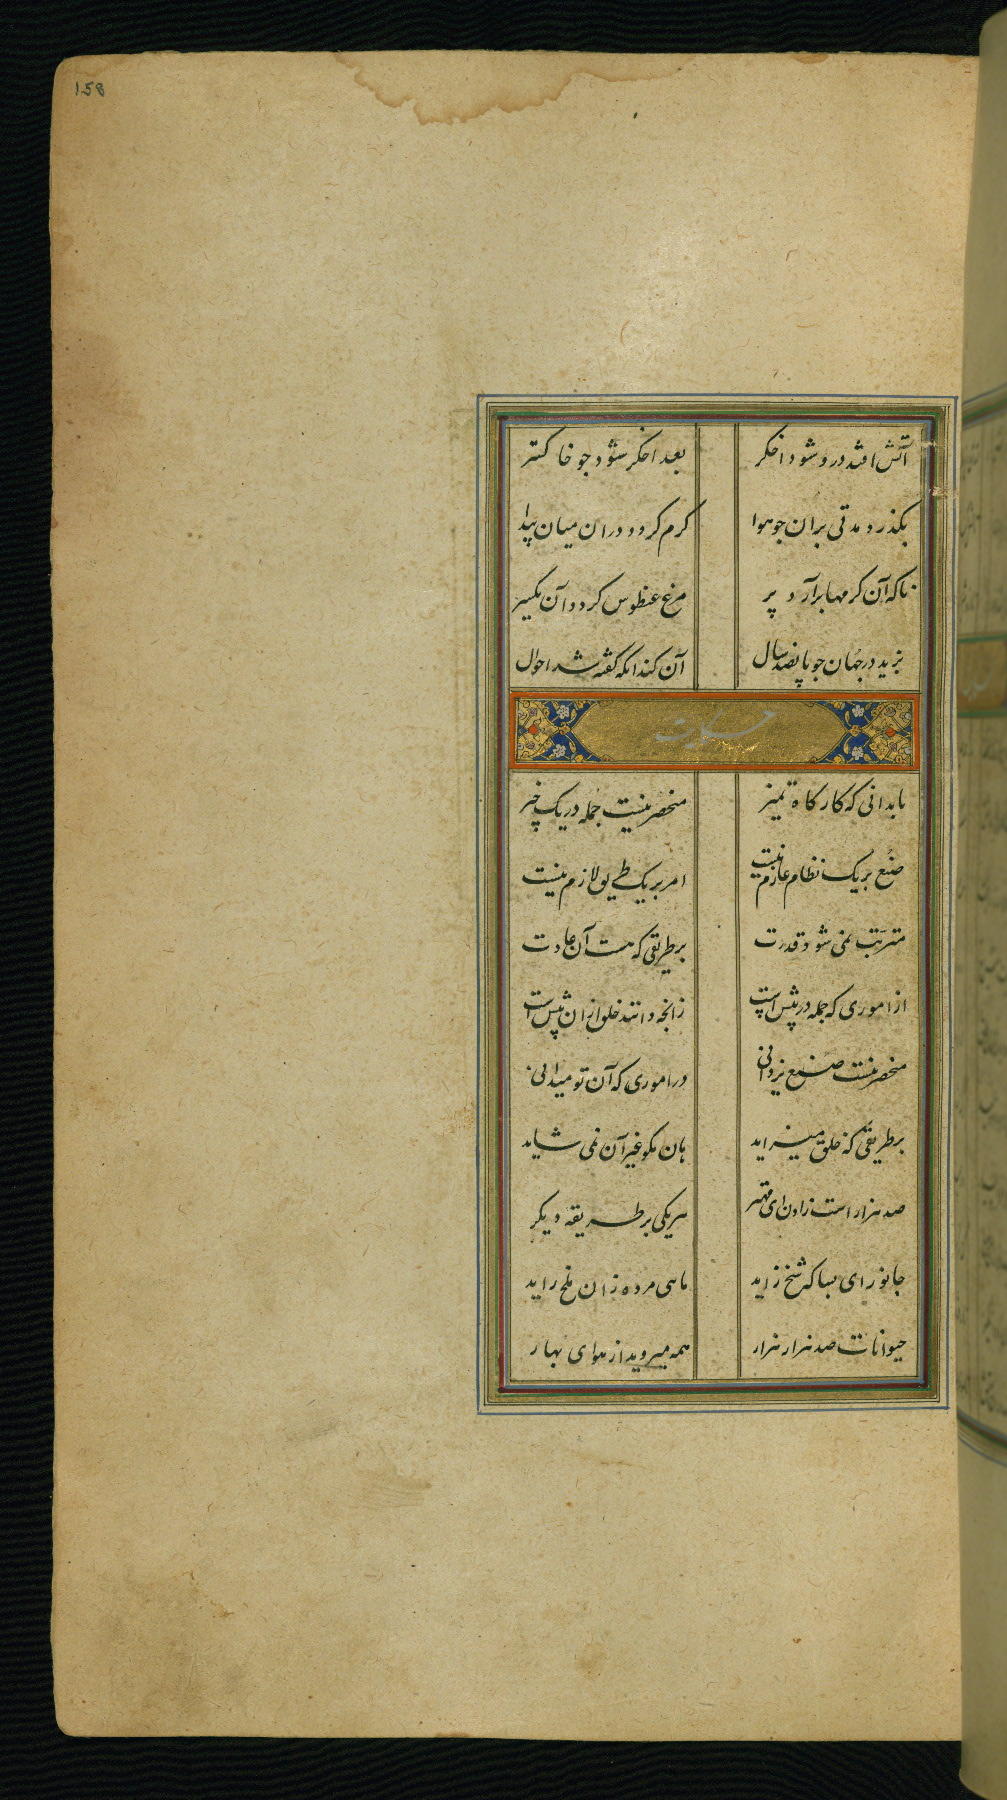 158
آتش افتد درو شود اخکر بعد اخکر شود جو خاکستر
بکذرد مدتی بران جو هوا کرم کردد دران میان پیدا
تاکه آن کرمها برآرد پر مرغ عنطوس کردد آن یکسر
بزید در جهان جو پانصد سال آن کند انکه کفته شد احوال
حکایت
تا بدانی که کارکاه تمیز منحصر نیست جمله در یک چیز
صنع بر یک نظام عازم نیست امر بر یک طریق لازم نیست
مترتب نمی شود قدرت بر طریقی که هست آن عادت
از اموری که جمله در پیش است زانچه دانند خلق ازان بیش است
منحصر نیست صنع یزدانی در اموری که آن تو میدانی
بر طریقی که خلق میزاید هان مکو غیر آن نمی شاید
صد هزار است زادن ای مهتر هر یکی بر طریقه دیکر
جانور ای بسا که شخ زاید ماهی مرده زان ملخ زاید
حیوانات صد هزار هزار همه میروید از هوای بهار